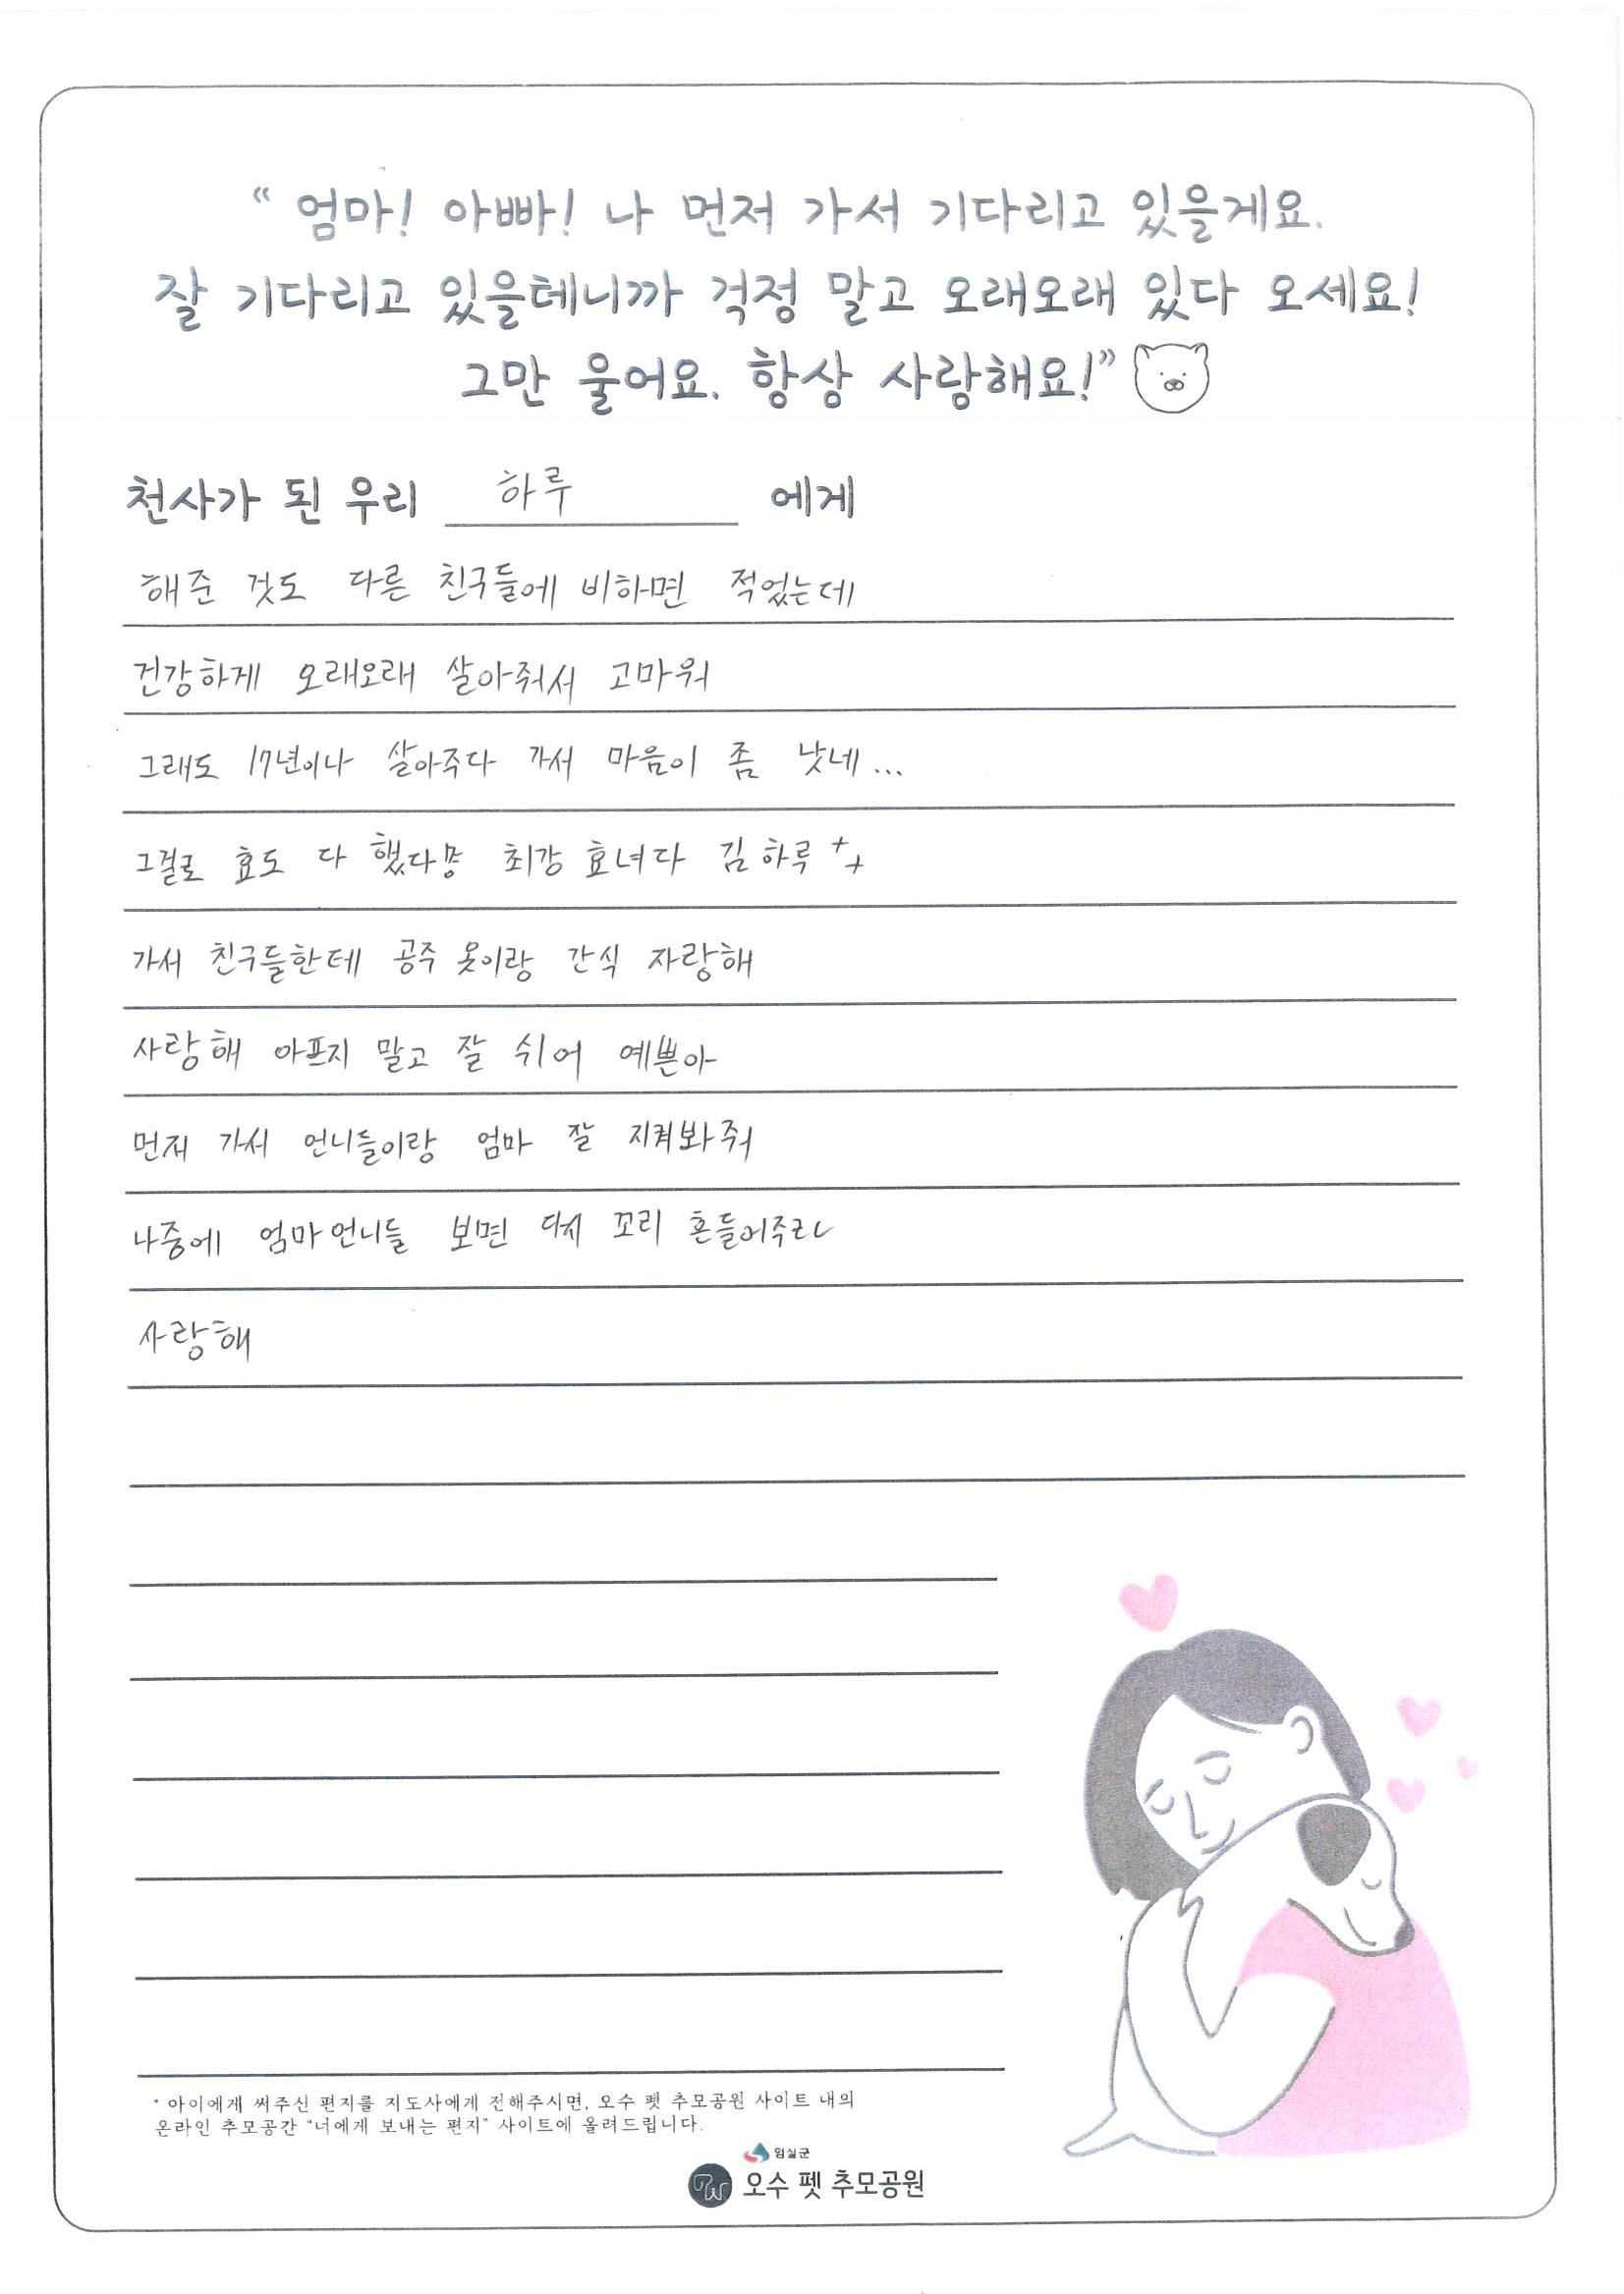 “ 엄마! 아빠! 나 먼저 가서 기다리고 있을게요.
잘 기다리고 있을테니까 걱정 말고 오래오래 있다 오세요!
그만 울어요. 항상 사랑해요!”
천사가 된 우리 하루 에게
해준 것도 다른 친구들에 비하면 적었는데
건강하게 오래오래 살아줘서 고마워
그래도 17년이나 살아주다 가서 마음이 좀 낫네...
그걸로 효도 다 했다 최강 효녀다 김하루 ++
가서 친구들한테 공주 옷이랑 간식 자랑해
사랑해 아프지 말고 잘 쉬어 예쁜아
먼저 가서 언니들이랑 엄마 잘 지켜봐줘
나중에 엄마언니들 보면 다시 꼬리 흔들어주라
사랑해
* 아이에게 써주신 편지를 지도사에게 전해주시면, 오수 펫 추모공원 사이트 내의
온라인 추모공간 "너에게 보내는 편지" 사이트에 올려드립니다.
임실군
PW 오수 펫 추모공원